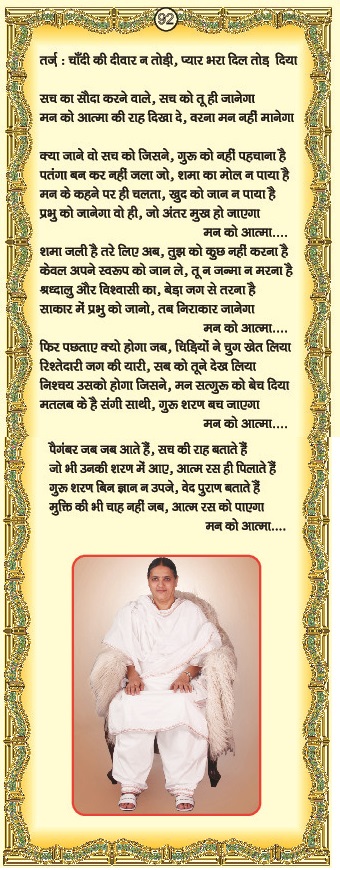 92
तर्ज़ : चाँदी की दीवार न तोड़ी, प्यार भरा दिल तोड़ दिया
सच का सौदा करने वाले, सच को तू ही जानेगा
मन को आत्मा की राह दिखा दे, वरना मन नहीं मानेगा
क्या जाने वो सच को जिसने, गुरू को नहीं पहचाना है
पतंगा बन कर नहीं जला जो, शमा का मोल न पाया है
मन के कहने पर ही चलता, खुद को जान न पाया है
प्रभु को जानेगा वो ही, जो अंतर मुख हो जाएगा
मन को आत्मा....
शमा जली है तरे लिए अब, तुझ को कुछ नहीं करना है
केवल अपने स्वरूप को जान ले, तू न जन्मा न मरना है
श्रध्दालु और विश्वासी का, बेड़ा जग से तरना है
साकार में प्रभु को जानो, तब निराकार जानेगा
मन को आत्मा....
फिर पछताए क्यो होगा जब, चिड़ियों ने चुग खेत लिया
रिश्तेदारी जग की यारी, सब को तूने देख लिया
निश्चय उसको होगा जिसने, मन सतगुरू को बेच दिया
मतलब के है संगी साथी, गुरू शरण बच जाएगा
मन को आत्मा....
पैगंबर जब जब आते हैं, सच की राह बताते हैं
जो भी उनकी शरण में आए, आत्म रस ही पिलाते हैं
गुरू शरण बिन ज्ञान न उपजे, वेद पुराण बताते हैं
मुक्ति की भी चाह नहीं जब, आत्म रस को पाएगा
मन को आत्मा....